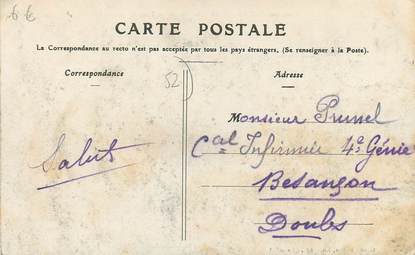 6 €
CARTE POSTALE
La Correspondance au recto n'est pas acceptée par tous les pays étrangers. (Se renseigner à la Poste).
Correspondance
52
Adresse
Monsieur Prunel
Cal Infirmerie 4e Génie
Salut
Besançon
Doubs